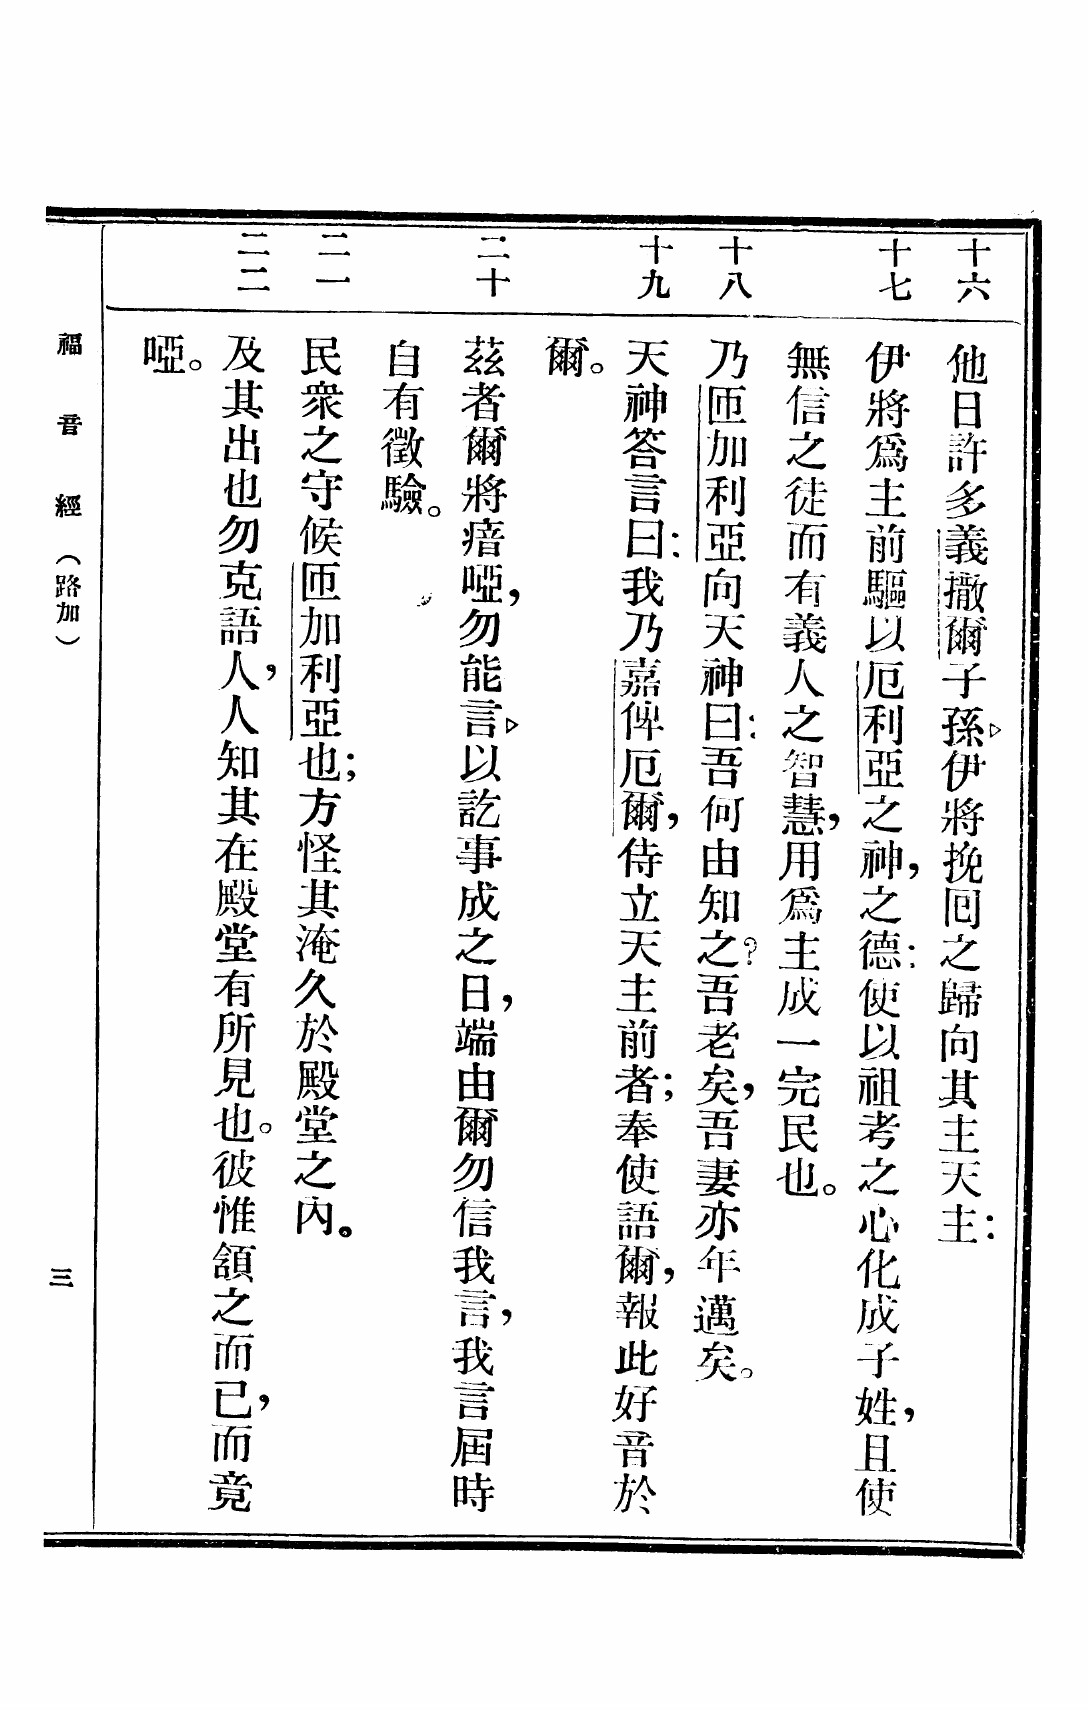 十六
他日許多義撒爾子孫▷伊將挽回之歸向其主天主：
十七
伊將爲主前驅以厄利亞之神，之德：使以祖考之心化成子姓，且使
無信之徒而有義人之智慧，用爲主成一完民也。
十八
乃匝加利亞向天神曰：吾何由知之？吾老矣，吾妻亦年邁矣。
十九
天神答言曰：我乃嘉俾厄爾，侍立天主前者；奉使語爾，報此好音於
爾。
二十
茲者爾將瘖啞，勿能言▷以訖事成之日，端由爾勿信我言，我言屆時
自有徵驗。
二一
民衆之守候匝加利亞也；方怪其淹久於殿堂之內。
二二
及其出也勿克語人，人知其在殿堂有所見也。彼惟頷之而已，而竟
啞。
福音經（路加）
三